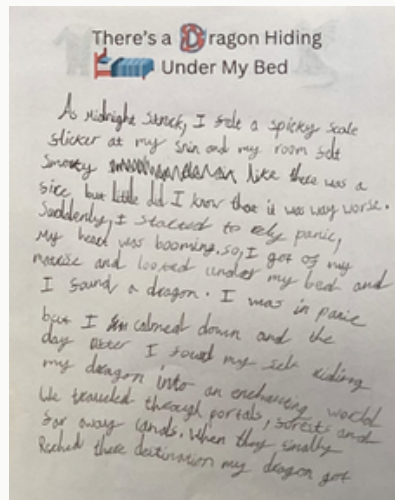 There's a Dragon Hiding
Under My Bed
As midnight struck, I felt a spicky scale
flicker at my skin and my room felt
Smoky like there was a
fire but little did I know that it was way worse.
Suddenly, I started to rely panic,
My heart was booming. so, I got of my
and looked under my bed and
I found a dragon. I was in panic
but I calmed down and the
day after I found my self riding
my dragon into an enchanting world
We traveled through portals, forests and
far away lands. When they finally
Reached there destination my dragon got